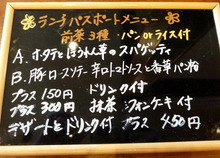 ランチパスポートメニュー
前菜3種・パンorライス付
A、ホタテとほうれん草のスパゲティ
B、豚ロースソテー 辛口トマトソースと香草パン粉
プラス150円 ドリンク付
プラス300円 抹茶シフォンケーキ付
デザートとドリンク付 プラス450円